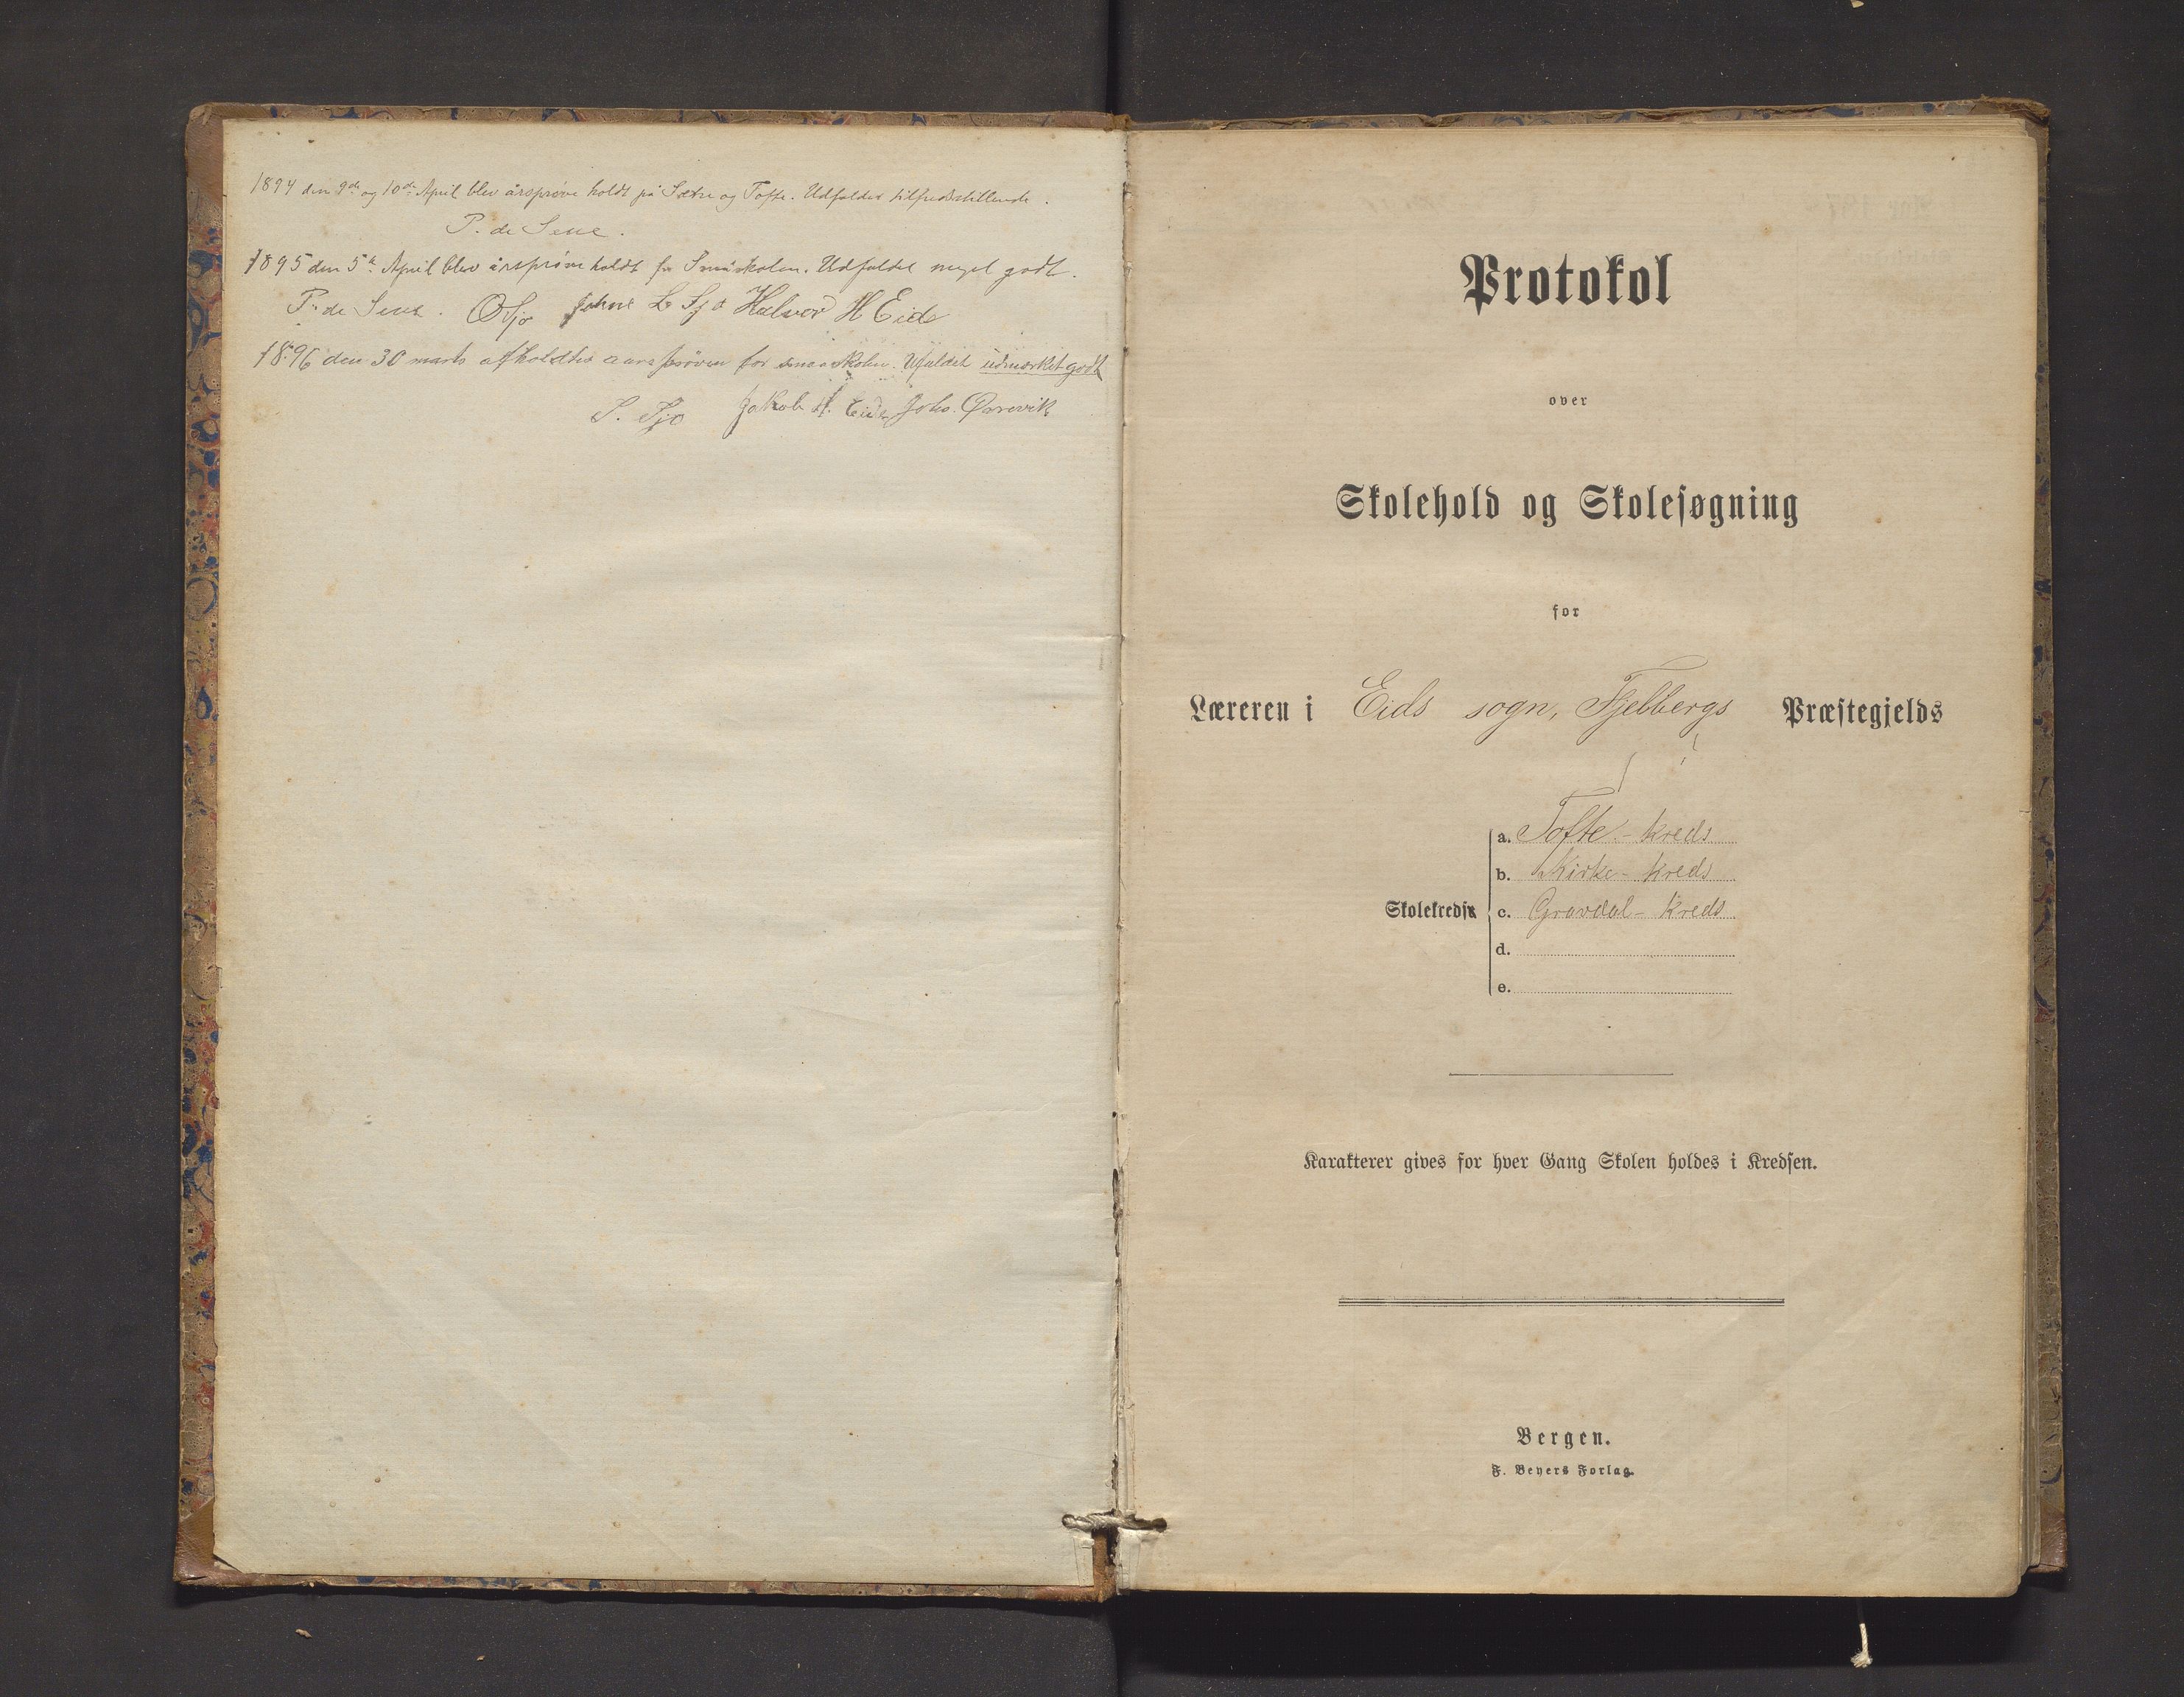 1894 den 9de og 10de April blev årsprøve holdt på Sætre og Tofte. Udfaldet tilfredsstillende.
P. de Seue.
1895 den 5te April blev årsprøve holdt for Småskolen. Udfaldet meget godt.
P. de Seue. O Sjo Johne L Sjo Halvor H Eide
1896 den 30 marts afholdtes aarsprøven for smaaskolen. Ufaldet udmærket godt
S. Sjo Jakob H. Eide Johs.
Protokol
over
Skolehold og Skolesøgning
for
Læreren i Eids sogn, Fjelbergs Præstegjelds
a. Tofte-kreds
b. Kirke-kreds
Skolekredse c. Gravdal-kreds
d.
e.
Karakterer gives for hver Gang Skolen holdes i Kredsen.
Bergen.
F. Beyers Forlag.